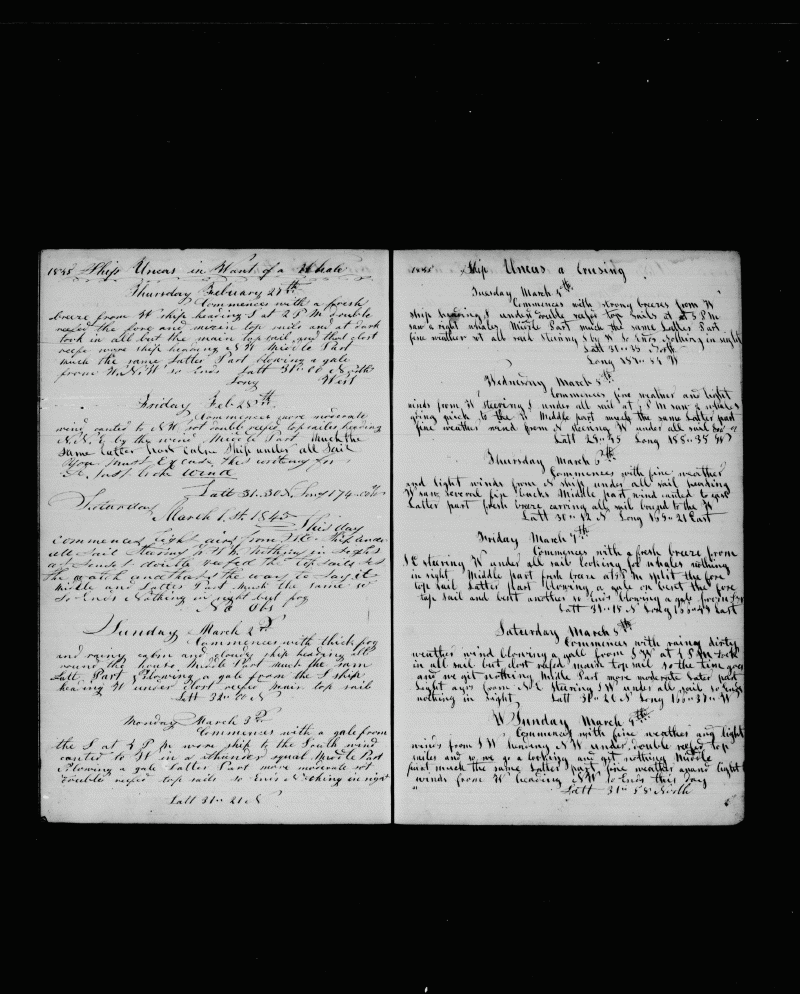 1845 Ship Uncas in Want of a Whale
Thursday February 27th
Commences with a fresh
breeze from W ship heading S at 2 P M double
reefed the fore and main top sails and at dark
took in all but the main top sail and that clost
reefe wore ship heading N W Middle Part
much the same Latter Part blowing a gale
from W.N.W so Ends Latt 31 00 North
Long West
Friday Feb 28th
Commences more moderate
wind canted to N W sot double reefed top sailes heading
N.N.E by the wind Middle Part Much the
Same latter part calm Ship under all Sail
You must Excuse this writing for
wind
Latt 31.30 N Long 174.00
Saturday
March 1.st. 1845
This day
Commenced light airs from S.E. Ship under
all Sail Stearing W N W Nothing in Sight
at double reefed the Top sails set
the watch and thats the way to say it
Middle and Latter Part Much the same
So Ends Nothing in sight but fog
No Obs
Sunday March 2nd
Commences with thick fog
and rainy calm and cloudy ship heading all
round the house Middle Part much the sam
Latt. Part blowing a gale from the S ship
heaing W under clost reefed main top sail
Latt 32 00 N
Monday March 3rd
Commences with a gale from
the S at 4 P M wore ship to the South wind
canted to W in a thunder squal Middle Part
Blowing a gale Latter Part more moderate sot
double reefed top sails so Ends Nothing in sight
Latt 31 21 N
1845 Ship Uncas a Crusing
Tuesday March 4th
Commences with strong breezes from W
ship heading S under double reefed top sails at at 5 P M
saw a right whale Middle Part much the same Latter Part
fine weather at all sail stearing S by W So Ends Nothing in sight
Latt 31 35 North
Long W
Wednesday March 5th
Commences fine weather and light
winds from W Steering S under all sail at 5 P M saw 2 whales
going quick to the Middle part much the same Latter part
fine weather wind from N Steering W under all sail
Latt 28 45 Long 155 35 W
Thursday March 6th
Commences with fine weather
and light winds from N ship under all sail heading
W saw several fin backs Middle part wind canted to east
Latter part fresh breeze carrying all sail bound to the W
Latt 30 12 N Long 155 21 East
Friday March 7th
Commences with a fresh breeze from
S E stearing W under all sail looking for whales nothing
in sight Middle part fresh breze at 5 M split the fore
top sail Latter Part blowing a gale on bent the fore
top sail and bent another so Ends blowing a gale from
Latt 31 18 N Long 155 49 East
Saturday March 8th
Commences with raing dirty
weather wind blowing a gale from S W at 5 P M took
in all sail but clost reefed main top sail so the time goes
and we get nothing Middle Part more moderate Later part
Light ayrs from N E Stering S W under all sail so Ends
nothing in Sight Latt 31 21 N Long 155 37 W
W Sunday March 9th
Commences with fine weather and light
winds from S W heading N W under double reefed top
sailes and so we go a looking and get nothing Middle
part much the same Latter part fine weather again light
winds from W heading N W So Ends this day
Latt 31 58 North